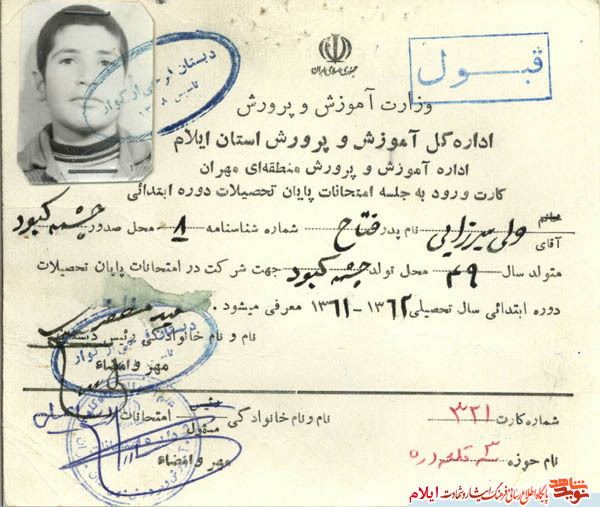 قبـــول
جمهوری اسلامی ایران
وزارت آموزش و پرورش
اداره کل آموزش و پرورش استان ایلام
اداره آموزش و پرورش منطقه‌ای مهران
کارت ورود به جلسه امتحانات پایان تحصیلات دوره ابتدائی
خانم
آقای ولی میرزایی نام پدر فتاح شماره شناسنامه ۸ محل صدور چشمه کبود
متولد سال ۴۹ محل تولد چشمه کبود جهت شرکت در امتحانات پایان تحصیلات
دوره ابتدائی سال تحصیلی ۱۳۶۲-۱۳۶۱ معرفی میشود .
نام و نام خانوادگی رئیس دبستان
مهر و امضاء
شماره کارت ۳۲۱ نام و نام خانوادگی رئیس امتحانات
مسئول
نام حوزه قلعه دره مهر و امضاء
دبستان
تاسیس ۱۳۰۸
نوید شاهد پایگاه اطلاع رسانی فرهنگ ایثار و شهادت ایلام